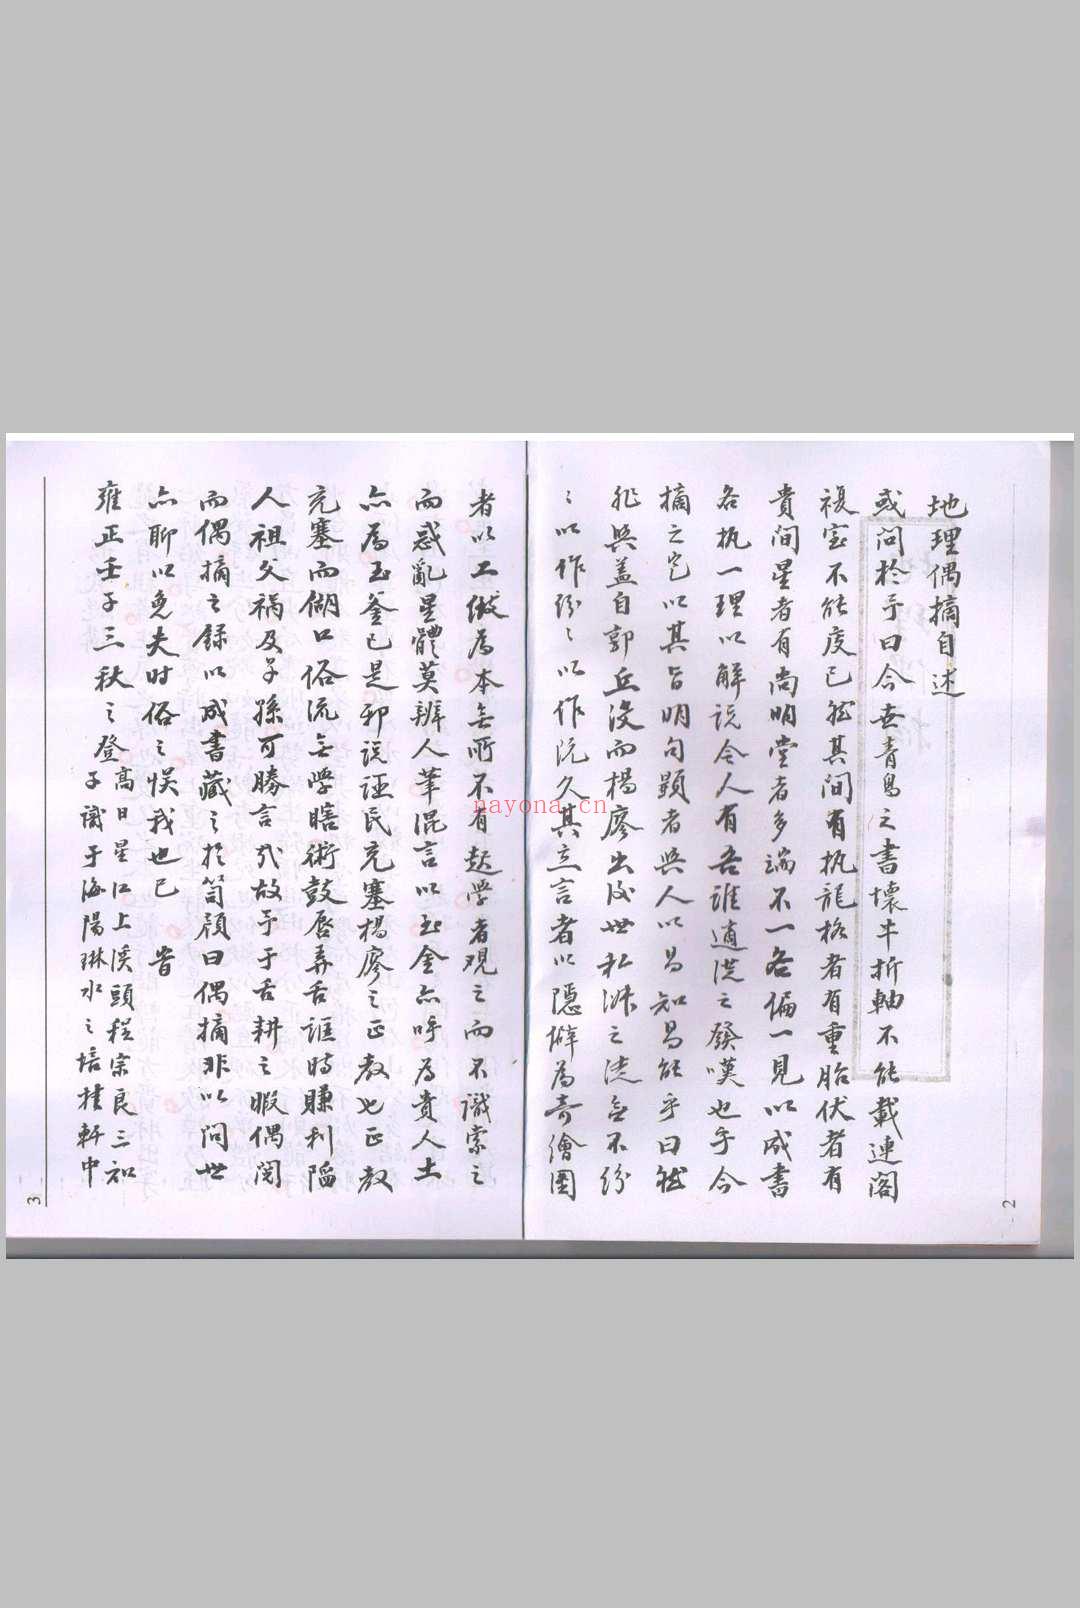 地理偶摘自述
或問於予曰今世青烏之書壞牛折軸不能載連閣
複室不能度已然其間有执龍格者有重胎伏者有
貴間星者有尚明堂者多端不一各偏一見以成書
各执一理以解説令人有吾誰適從之發嘆也乎今
摘之定以其旨明句顯者與人以易知易能乎曰然
非與盖自郭丘没而楊廖出後世私淑之徒無不紛
〻以作紛〻以作沉久其立言者以隱僻為奇繪圖
者以工緻為本無所不有起學者观之而不識索之
而惑亂星體莫辨人筆混言以玉金亦呼為貴人土
亦為玉釜已是邪説誣民充塞楊廖之正教也正教
充塞而餬口俗流無學瞎術鼓唇弄舌誑時賺利陷
人祖父禍及子孫可勝言哉故予于舌耕之暇偶閲
而偶摘之録以成書藏之於笥顔曰偶摘非以問世
亦聊以免夫时俗之悮我也已 旹
雍正壬子三秋之登高日星江上溪頭程宗良三知
子識于海陽琳水之培桂軒中
nayona.cn
2
3